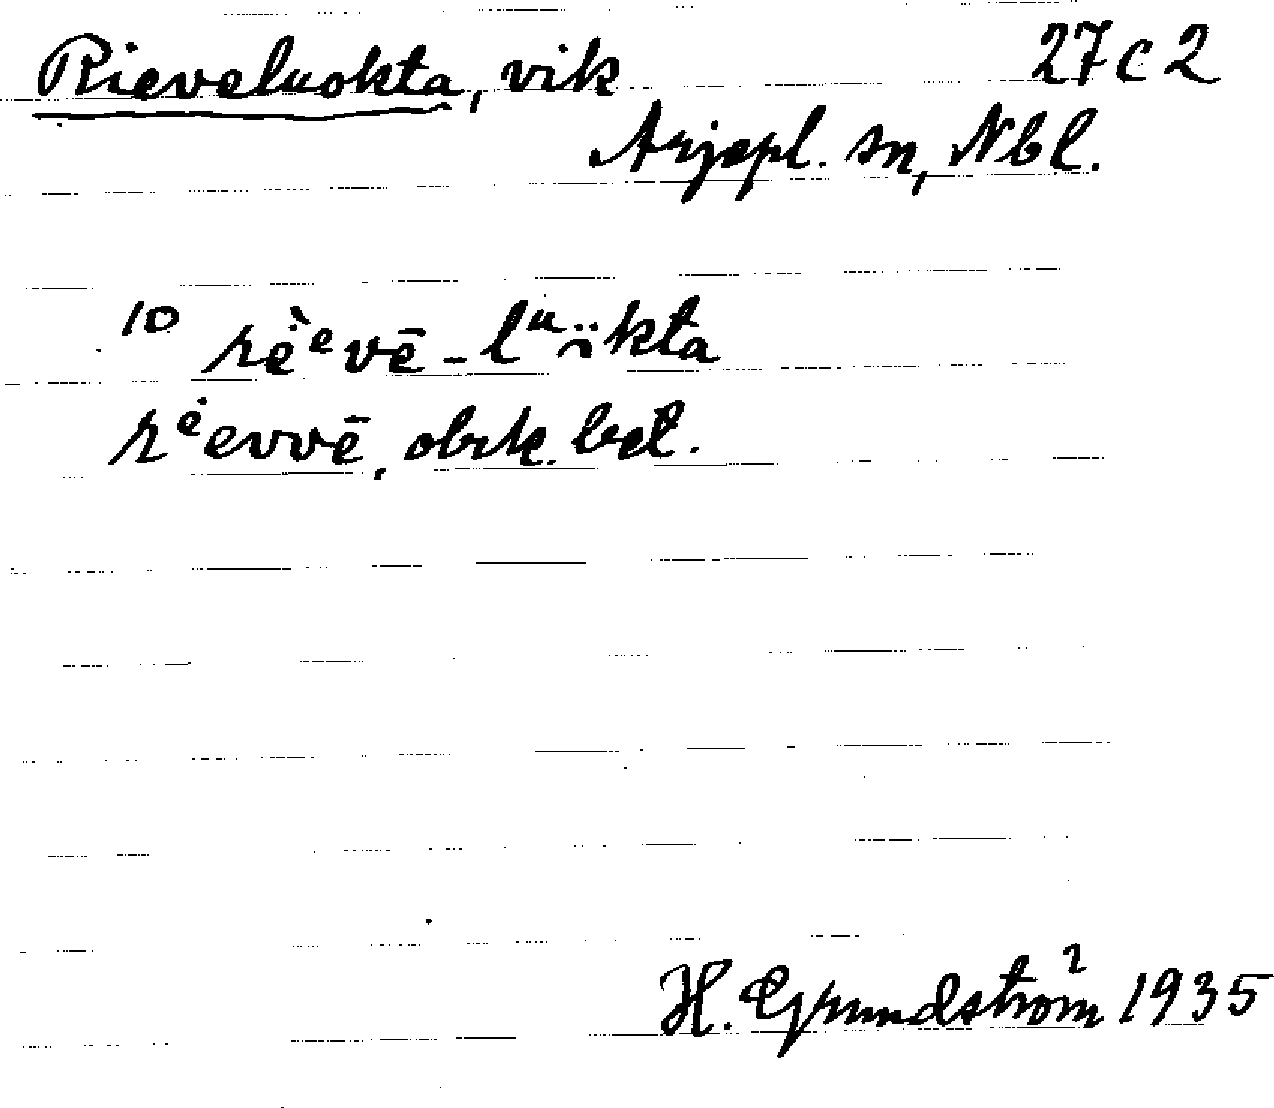 Rieveluokta, vik 27 c 2
Arjepl. sn, Nbl.
10 rė̀ᵉvē-lᵘökta
rėevvē, obek. bet.
H. Grundström 1935